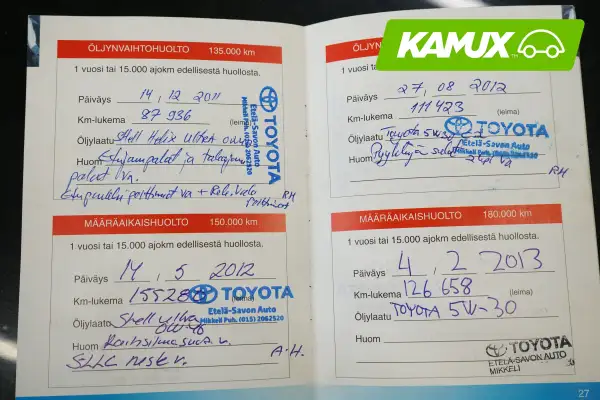 KAMUX
ÖLJYNVAIHTOHUOLTO 135.000 km
1 vuosi tai 15.000 ajokm edellisestä huollosta.
Päiväys 14, 12 2011
Km-lukema 87 936 (leima)
Öljylaatu Shell Helix Ultra
Huom Etujarrupalat ja takajarru
palat va.
TOYOTA
Etelä-Savon Auto
Mikkeli Puh. (015) 2062520
RH
MÄÄRÄAIKAISHUOLTO 150.000 km
1 vuosi tai 15.000 ajokm edellisestä huollosta.
Päiväys 14, 5 2012
Km-lukema (leima)
Öljylaatu Shell Ultra
Huom
SLLC
A.H.
TOYOTA
Etelä-Savon Auto
Mikkeli Puh. (015) 2062520
ÖLJYN
1 vuosi
Päiväys 27, 08 2012
Km-lukema 111423 (leima)
Öljylaatu Toyota 5W30
Huom
TOYOTA
Etelä-Savon Auto
Mikkeli Puh. (015) 2062520
RH
MÄÄRÄAIKAISHUOLTO 180.000 km
1 vuosi tai 15.000 ajokm edellisestä huollosta.
Päiväys 4, 2 2013
Km-lukema 126 658 (leima)
Öljylaatu TOYOTA 5W-30
Huom
TOYOTA
ETELÄ-SAVON AUTO
MIKKELI
27